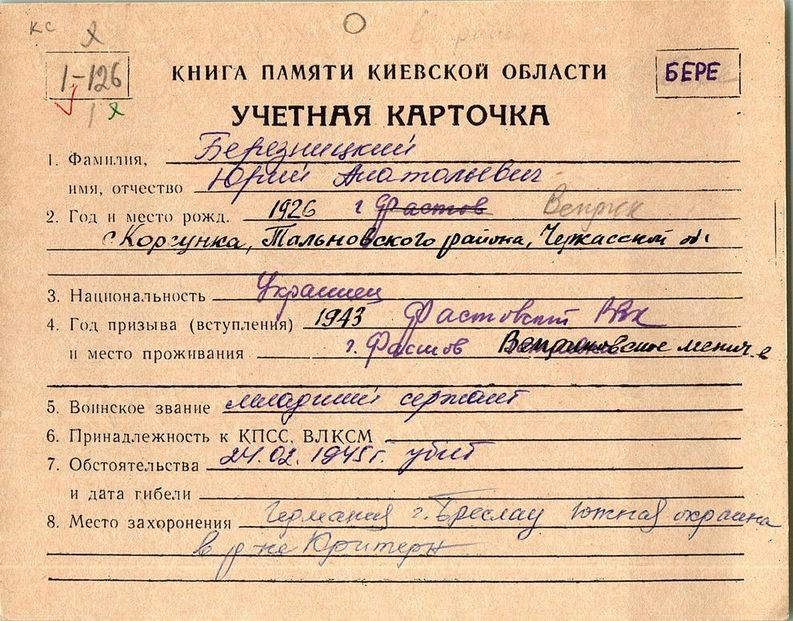 КС
1-126
КНИГА ПАМЯТИ КИЕВСКОЙ ОБЛАСТИ
БЕРЕ
УЧЕТНАЯ КАРТОЧКА
1. Фамилия, Березницкий
имя, отчество Юрий Анатольевич
2. Год и место рожд. 1926 г Фастов
с Корсунка, Тальновского района, Черкасской об
3. Национальность Украинец
4. Год призыва (вступления) 1943 Фастовский РВК
и место проживания г. Фастов
5. Воинское звание младший сержант
6. Принадлежность к КПСС, ВЛКСМ
7. Обстоятельства 24.02.1945г. убит
и дата гибели
8. Место захоронения Германия г. Бреслау Южная окраина
в р-не